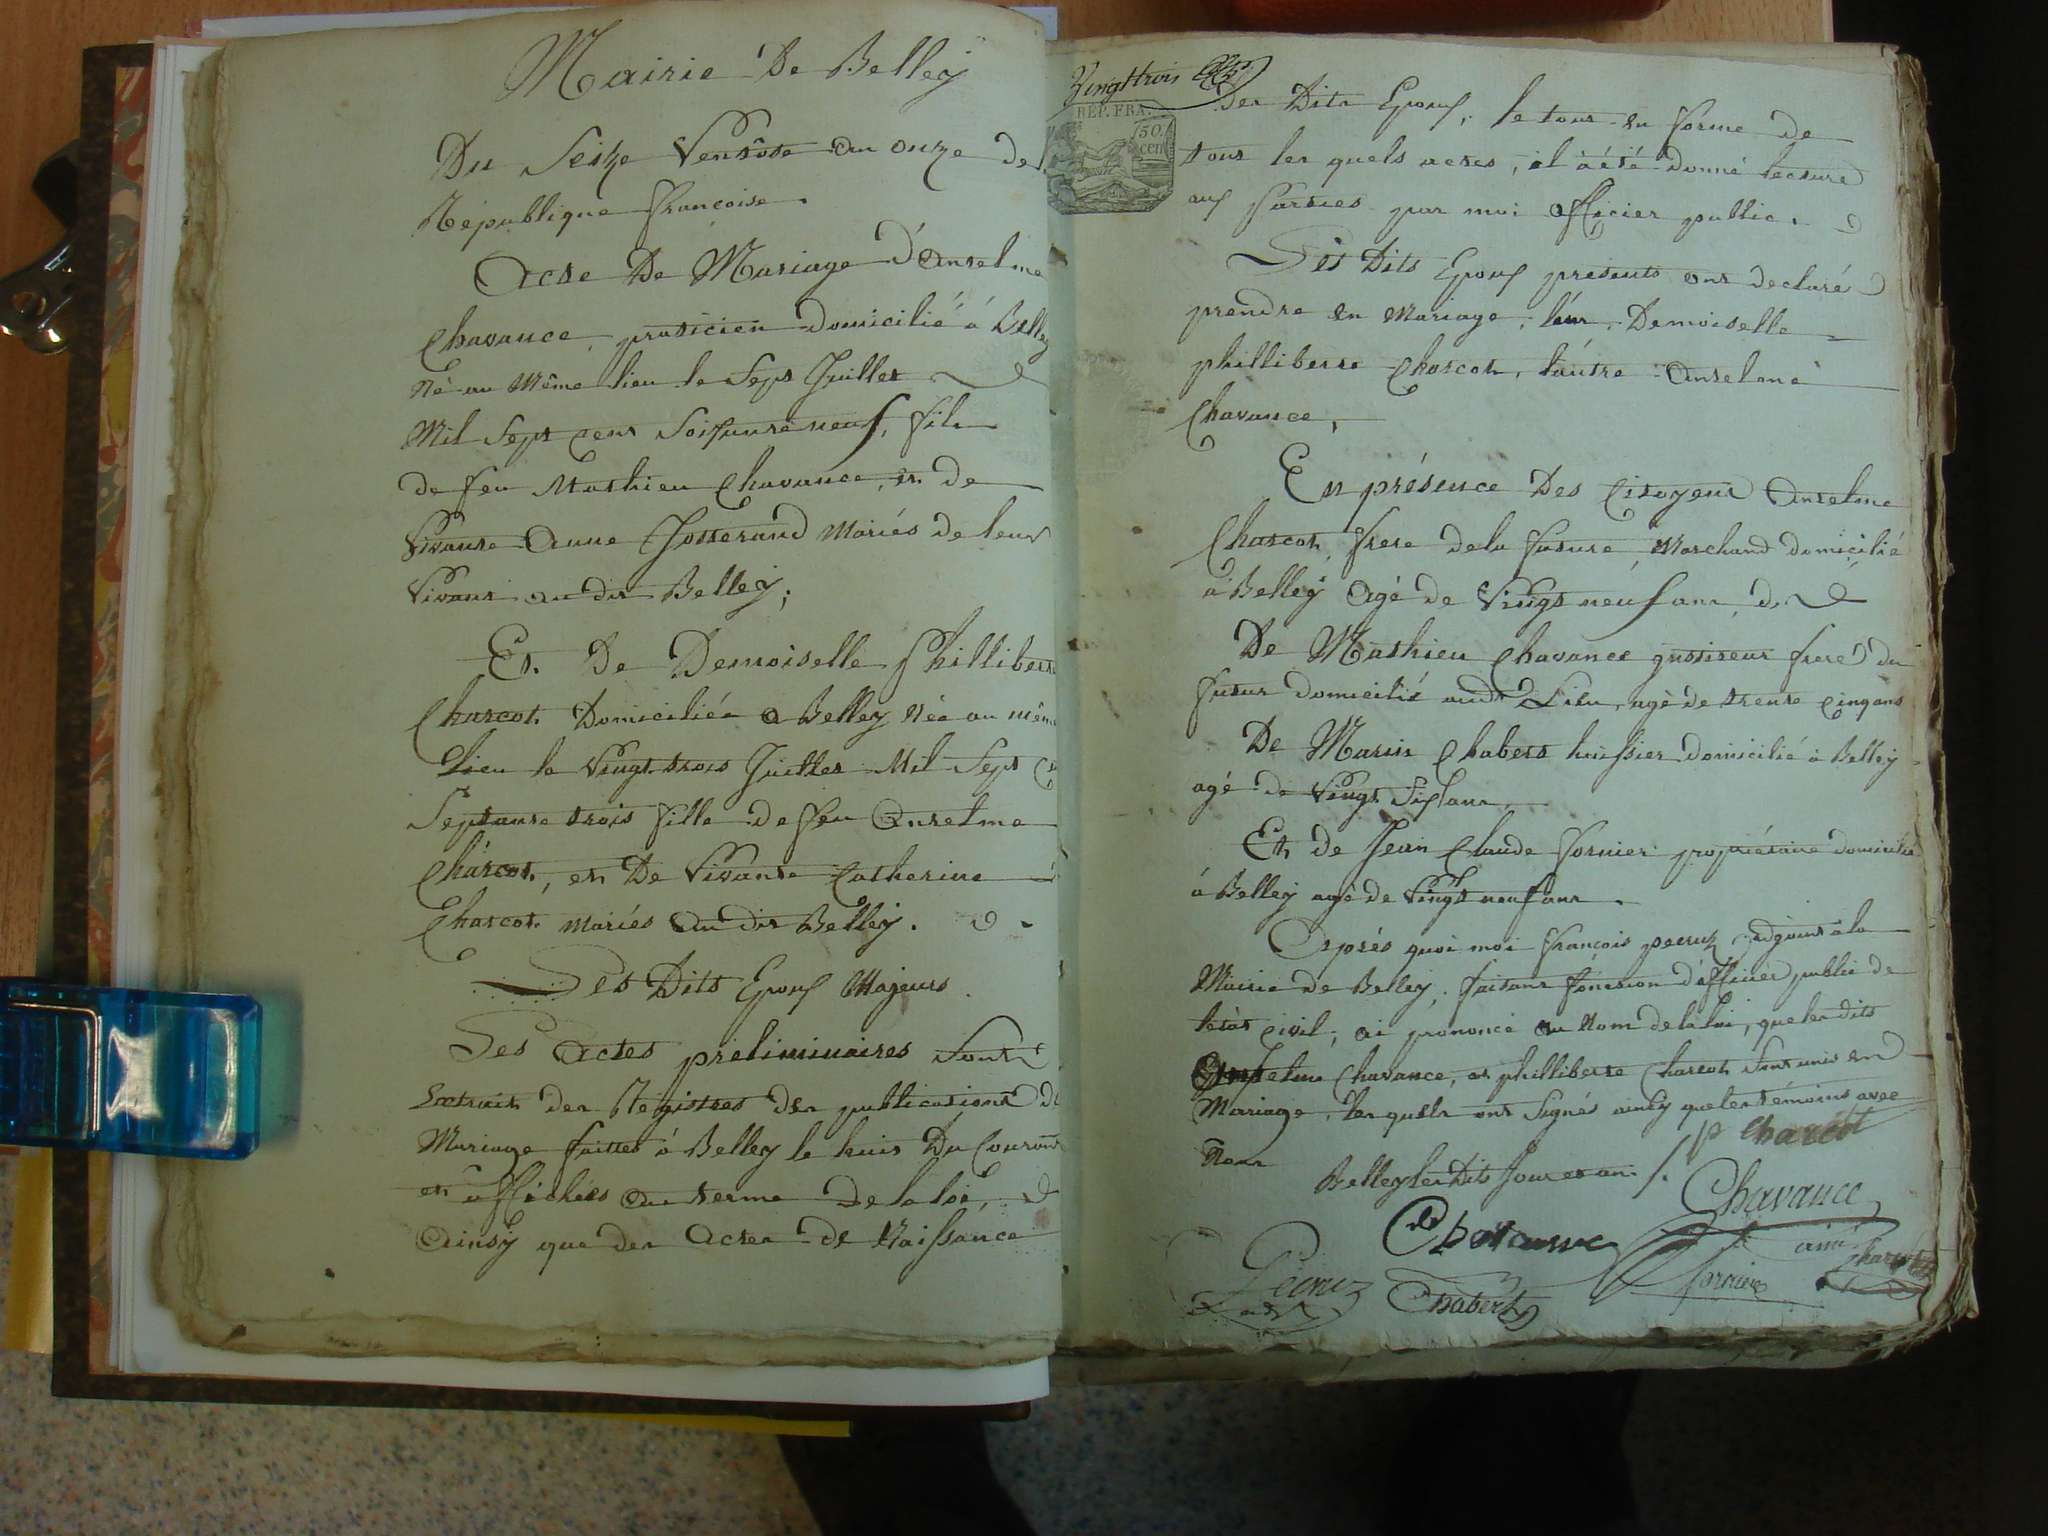 Mairie De Belley
Du Seize Ventôse an onze de la
République françoise.
Acte De Mariage d'Anselme
Chavance, praticien domicilié à Belley
Né au même lieu le Sept Juillet
Mil Sept Cent Soixante neuf, fils
de feu Mathieu Chavance, et de
Vivante Anne Josserand mariés de leur
Vivant au dit Belley;
Et De Demoiselle Philliberte
Charcot Domiciliée à Belley Née au même
Lieu le Vingt trois Juillet Mil Sept
Septante trois fille de feu Anselme
Charcot, et De Vivante Catherine
Charcot mariés Au dit Belley.
Les Dits Epoux Majeurs
Les Actes préliminaires Sont
Extrait des Registres des publications de
Mariage faittes à Belley le huit Du Courant
et affichées au terme de la loi,
Ainsy que des Actes de Naissance
Vingt trois
REP. FRA.
50.
cen
des Dits Epoux, le tout en forme de
tous les quels actes, il a été donné lecture
aux Parties par moi officier public.
Les Dits Epoux présents ont declaré
prendre en Mariage, l'un, Demoiselle
philliberte Charcot, l'autre Anselme
Chavance,
En présence Des Citoyens Anselme
Charcot, frere de la future, Marchand domicilié
à Belley Agé de Vingt neuf ans,
De Mathieu Chavance frere du
futur domicilié audt Lieu, agé de trente cinq ans
De Marin Chabert huissier domicilié à Belley
agé de Vingt Six ans
Et de Jean Claude fornier propriétaire domicilié
à Belley agé de Vingt neuf ans.
Après quoi moi François pecruz adjoint à la
Mairie de Belley, faisant fonction d'officier public de
létat civil, ai prononcé au Nom de la loi, que les dits
Anselme Chavance, et philliberte Charcot Sont unis en
Mariage, les quels ont Signés ainsy que les témoins avec
Nous
Belley les Dits Jour et an
p Charcot
Chavance
Chavance
Charcot
fornier
Pecruz
Chabert